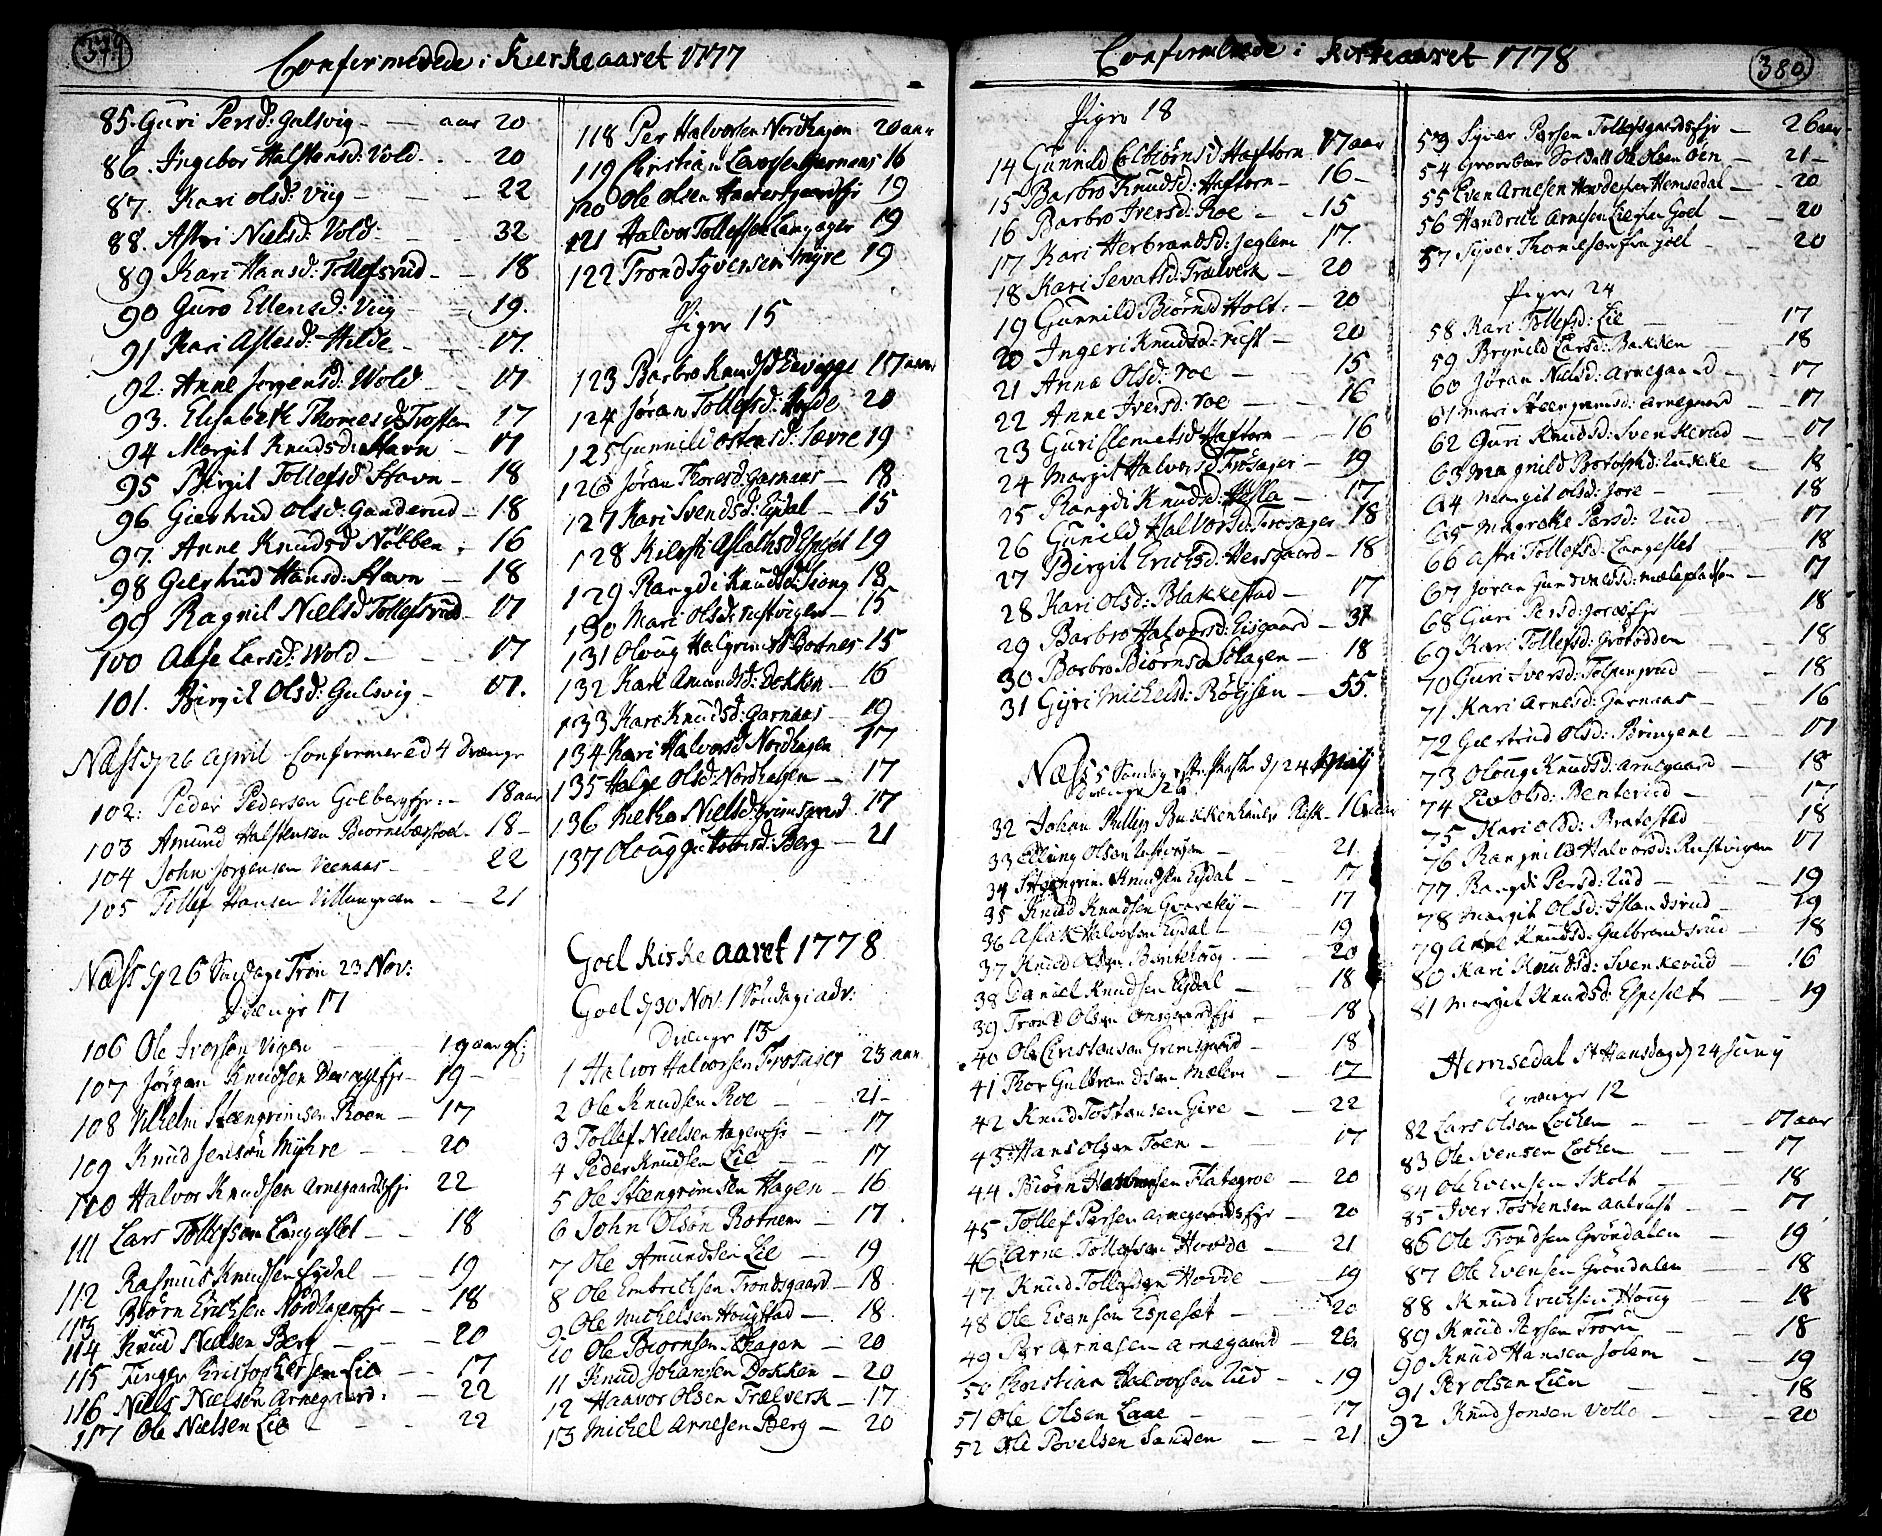 379
Confirmerede i Kierkeaaret 1777
85. Guri Persd: Gulsvig - - aar 20
86. Ingebor Halstensd: Vold - - 20
87. Kari olsd: Viig - - 22
88. Astri Nielsd: Vold - - 32
89 Kari Hansd: Tollefsrud - - 18
90 Guro Ellensd: Viig - 19.
91 Kari Aslesd: Hilde - - 17.
92. Anne Jorgensd: Wold - - 17
93. Elisabeth Thomesd: Trosten 17
94 Margit Knudsd: Havn - 17
95 Birgit Tollefsd Havn - 18
96 Giertrud Olsd: Ganderud - 18
97. Anne Knudsd Nølben - 16
98 Giertrud Hansd: Havn - 18
99 Ragnil Nielsd Tollefsrud - 17
100 Aase Larsd: Wold - - 17
101. Birgit Olsd: Gulsvig - 17.
Næss d 26 April Confirmered 4 Drænge
102: Peder Pedersen Golbergejr: - 18 aar
103 Amund Halstensen Biørnebøestoel - 18 -
104 John Jorgensen Veenaas - 22
105 Tollef Hansen Villangreen - - 21
Næss d 26 Søndage Trin 23 Nov:
Drænge 17
106 Ole Iversøn Vigen 19 aar gl:
107 Jørgen Knudsen - 19 -
108 Vilhelm Steengrimsen Roen - 17
109 Knud Jensøn Myhre - - 20
110 Halvor Knudsen Arnegaardsejr 22
111 Lars Tollefsøn Langeslet - - 18
112 Rasmus Knudsen Eydal - - 19
113 Biørn Erichsen Nordhagenejr - - 18
114 Knud Nielsen Berg - - 20
115 Tinger Cristophersen Lie - 17
116 Niels Nielsøn Arnegaard: - 22
117 Ole Nielsen Lie - - 22
118 Per Halvorsen Nordhagen 20 aar
119 Christian Larssen Garnaas 16
120 Ole Olsen 19
121 Halvor Tollefsen Langager 19
122 Trond Syversen Myre 19
Piger 15
123 Barbro Knudsd Bevigge 17 aar
124 Jøran Tollefsd: Hyde 20
125 Gunnild ostensd: Sævre 19
126 Jøran Thoresd: Garnaas - 18
127 Kari Svendsd: Eydal - 15
128 Kilesti Aslachsd Espeset 19
129 Rangdi Knudsd: Liong 18
130 Mari Olsd: rustvigen - 15
131 Oloug Halgrimsd Botnes 15
132 Kari Amundsd: Dokken - 16
133 Kari Knudsd: Garnaas - 19
134 Kari Halvorsd Nordhagen 17
135 Helge Olsd: Nordhagen - 17
136 Birthe Nielsd: Grimsgaard 17
137 Oloug Guttormsd: Berg - 21
Goel Kirke aaret 1778
Goel d 30 Nov: 1 Søndag i adv:
Drænge 13
1 Halvor Halvorsen Frosager 23 aar
2 Ole Knudsen Roe - - 21 -
3 Tollef Nielsen Hagenejr - 17
4 Peder Knudsen Lie - - 17
5 Ole Steengrimsen Hagen - 16
6 John Olsøn Rotnem - 17.
7 Ole Amundsen Lie - 19
8 Ole Embrichsen Trondsgaard - 18
9 Ole Michelsen Hougstad - 18.
10 Ole Biørnsen Skagen - 20
11 Knud Johansen Dokken - 20
12 Haavor Olsen Trælverk - 17.
13 Michel Arnesen Berg - 20
Confirmerede i Kirkeaaret 1778
380
Piger 18
14 Gunnild Colbiørnsd Haftorn 17 aar
15 Barbro Knudsd: Haftorn - 16 -
16 Barbro Iversd: Roe - - 15
17 Kari Herbrandsd: Jeglem 17.
18 Kari Sevatsd: Trælverk - 20
19 Gunnild Biørnsd Holt: - 20
20 Ingeri Knudsd: rust - 20
21 Anne Olsd: roe - 15
22 Anne Iversd: roe - - 16
23 Guri Clemetsd Haftorn - - 16
24 Margit Halvorsd Frøsager - 19
25 Rangdi Knudsd: Hesla - 17
26 Gunild Halvorsd: Frosager 18
27 Birgit Erichsd: Hersgaard - 18
28 Kari Olsd: Blakkestad - 17
29 Barbro Halvorsd: Eisgaard - 31
30 Barbro Biørnsd Skagen - 18
31 Gyri Michelsd: Røysen - 55.
Næss 5 Søndag efter Paaske d 24 Maij
Drænge 26
32 Johan Philip Bukkenhauss Rist - 16 aar
33 Elling Olsøn rustvigen - 21
34 Steengrim Knudsen Eydal - 17
35 Knud Knudsen Qværeby - 17
36 Aslak Halvorsøn Eydal - 19
37 Knud Olsøn Bentehoug - 20
38 Daniel Knudsen Eydal - 18
39 Trond Olsøn Onsgaardejr - 18
40 Ole Cristensøn Grimsgaard - 18
41 Thor Gulbrandsøn Mælen - 17
42 Knud Tostensen Gire - - 22
43 Hans Olsøn Toen - 17
44 Biørn Flategroe - 20
45 Tollef Persen Arnegaardsejr - 20
46 Arne Tollefsøn Hovde - 21
47 Knud Tollefsøn Hovde - 19
48 Ole Evensøn Espeset - - 20
49 Per Arnesen Arnegaard - 26
50 Christian Halvorsøn Rud - 19
51 Ole Olsen Laae - 17
52 Ole Povelsen Sanden - - 21
53 Syver Persen Tollefsgaardsejr - 26 aar
54 Gevorben Soldatt Ole Olsen Øen - 21 -
55 Even Arnesen Hemsedal - - 20
56 Handrik Arnesen Lie fra Goel - - 20
57 Syver Thomesøn fra goel - - 20
Piger 24
58 Kari Tollefsd: Lie - 17
59 Brynild Larsd: Bakken - 18
60 Jøran Nielsd: Arnegaard - - 17
61 Mari Steengrimsd: Arnegaard - - 17
62 Guri Knudsd: Svenkerud - - 17
63 Magnild Botolfsd: Lukke - 18
64 Margit Olsd: Jore - - 18
65 Margrethe Persd: Rud - - 17
66 Astri Tollefsd: Langeslet - 18
67 Jøran - 17
68 Guri Persd: 18
69 Kari Tollefsd: Grøtodden - - 18
70 Guri Iversd: Tolpingrud - - 18
71 Kari Arnesd: Garnaas - - 16
72 Giertrud Olsd: Bringene - - 17
73 Oloug Knudsd: Arnegaard - - 18
74 Liv Olsd: Benterud - - 17
75 Kari Olsd: Bratestad - - 18
76 Rangnild Halvorsd: Rustvigen 17
77 Rangdi Persd: Rud - - 19
78 Margit Olsd: Islandsrud - - 19
79 Anne Knudsd: Gulbrandsrud - 18
80 Kari Knudsd: Svenkerud - 16
81 Margit Knudsd: Espeset - - 19
Hemsedal St Hansdag d 24 Juny
Drænge 12
82 Lars Olsen Løchen - - 17 aar
83 Ole Svensen Løchen - - 17
84 Ole Evensen Skolt - - 18
85 Iver Tostensen Aalrust - - 17
86 Ole Trondsen Grøndalen - 19
87 Ole Evensen Grøndalen - 18
88 Knud Erichsen Houg - - 18
89 Knud Persen Trøim - - 18
90 Knud Hansen Solem - - 19
91 Per Olsen Lien - - 18
92 Knud Jonsen Vøllo - - 20